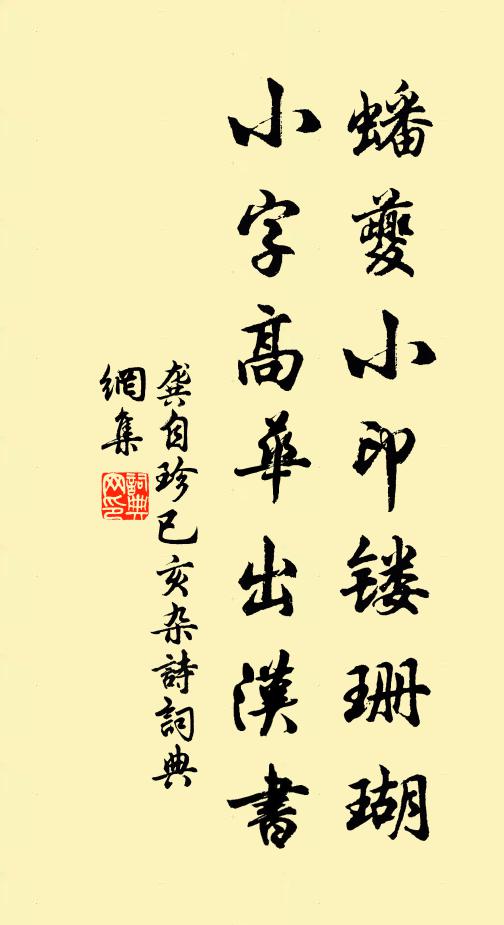 蟠夔小印镂珊瑚
小字高華出漢書
龚自珍已亥杂詩詞典
網集
詞典网印